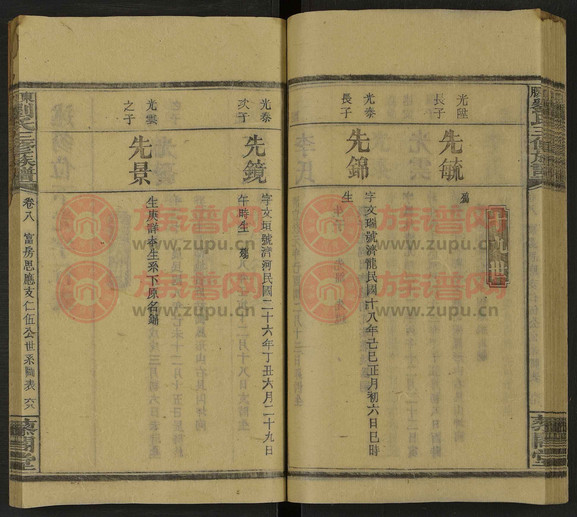 十九世
光陞
長子
先毓
殤
光泰
長子
先錦
字文瑞號濟龍民國十八年己巳正月初六日巳時
生
光泰
次子
先鏡
字文垣號濟河民國二十六年丁丑六月二十九日
午時生 殤
光雲
之子
先景
生庚詳本生系下原名鏽
卷八 富房思聽支仁伍公世系圖表
族谱网
www.zupu.cn
族谱网
www.zupu.cn
族谱网
www.zupu.cn
族谱网
www.zupu.cn